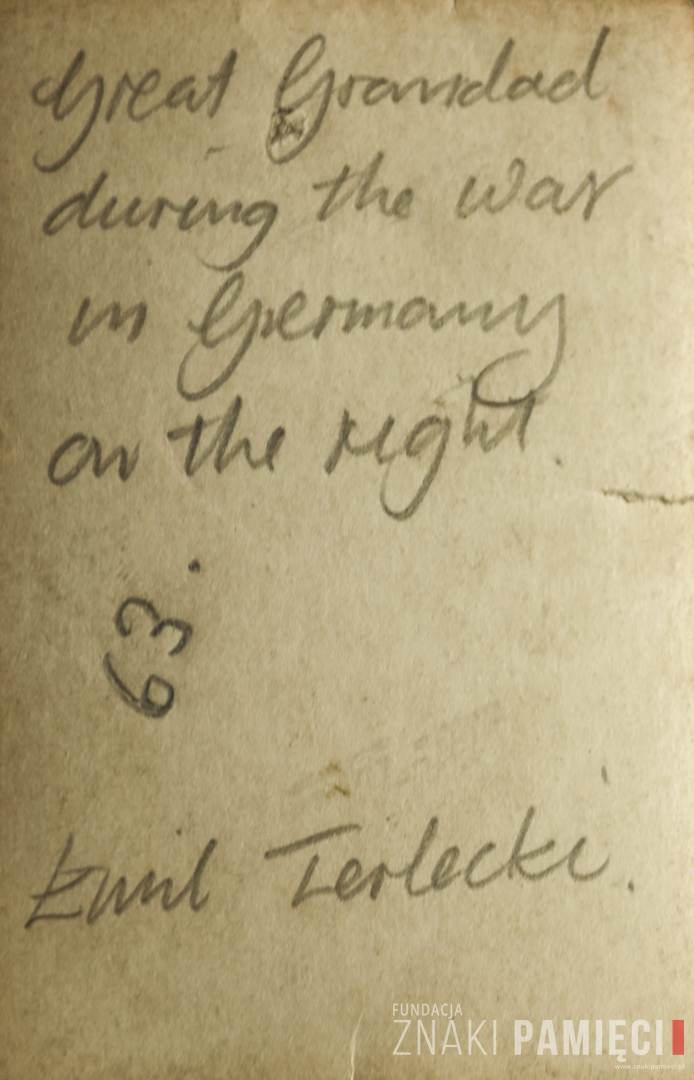 Great Grandad
during the war
in Germany
on the right.
63.
Emil Terlecki.
FUNDACJA
ZNAKI PAMIĘCI
www.znakipamieci.pl